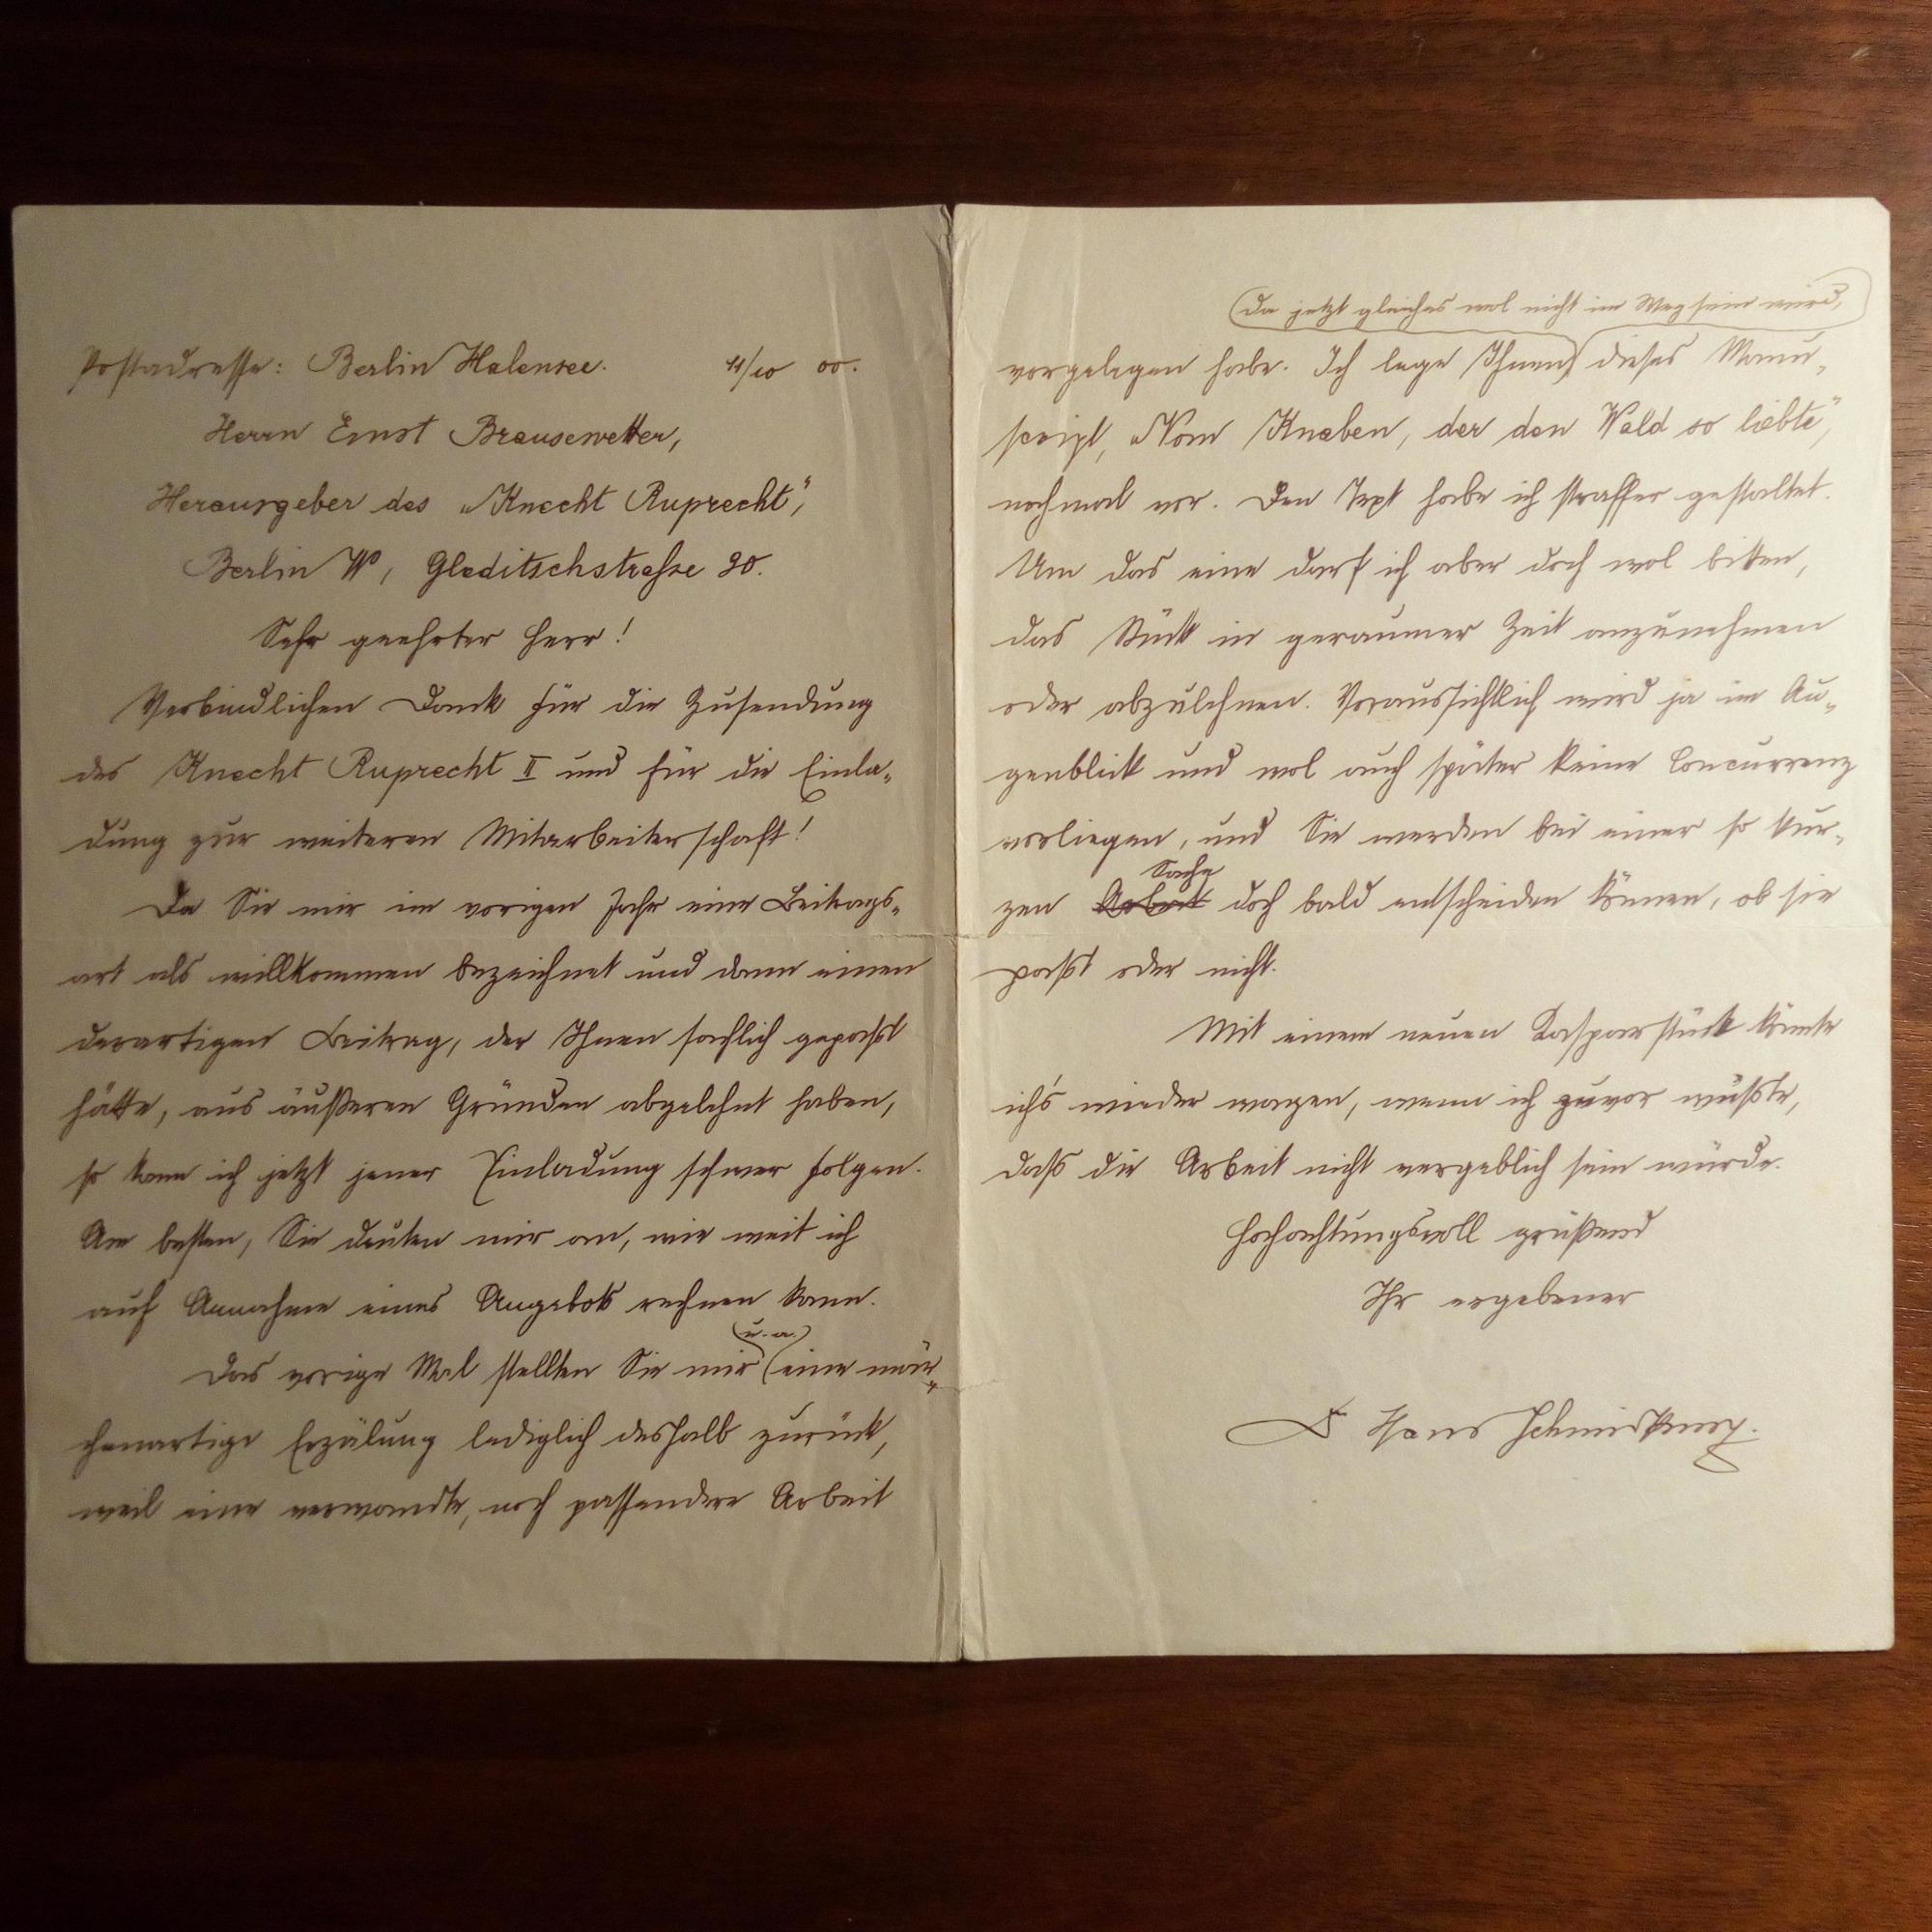 Postadresse: Berlin Halensee. 11/10 00.
Herrn Ernst Brausewetter,
Herausgeber des „Knecht Ruprecht“,
Berlin W, Gleditschstrasse 30.
Sehr geehrter Herr!
Verbindlichen Dank für die Zusendung
des Knecht Ruprecht II und für die Einla-
dung zur weiteren Mitarbeiterschaft!
Da Sie mir im vorigen Jahr eine Beitrags-
art als willkommen bezeichnet und dann einen
derartigen Beitrag, der Ihnen sachlich gepaßt
hätte, aus äußeren Gründen abgelehnt haben,
so kann ich jetzt jener Einladung schwer folgen.
Am besten, Sie deuten mir an, wie weit ich
auf Annahme eines Angebots rechnen kann.
(u. a.)
Das vorige Mal stellten Sie mir eine mär-
chenartige Erzälung lediglich deshalb zurück,
weil eine verwandte, noch passendere Arbeit
da jetzt gleiches wol nicht im Weg sein wird,
vorgelegen habe. Ich lege Ihnen dieses Manu-
script, „Vom Knaben, der den Wald so liebte“,
nochmal vor. Den Text habe ich straffer gestaltet.
Um das eine darf ich aber doch wol bitten,
das Stück in geraumer Zeit anzunehmen
oder abzulehnen. Voraussichtlich wird ja im Au-
genblick und wol auch später keine Concurrenz
vorliegen, und Sie werden bei einer so kur-
Sache
zen Arbeit doch bald entscheiden können, ob sie
paßt oder nicht.
Mit einem neuen Kasparstück könnte
ich's wieder wagen, wenn ich zuvor wüßte,
daß die Arbeit nicht vergeblich sein würde.
Hochachtungsvoll grüßend
Ihr ergebener
Dr Hans Schmidkunz.